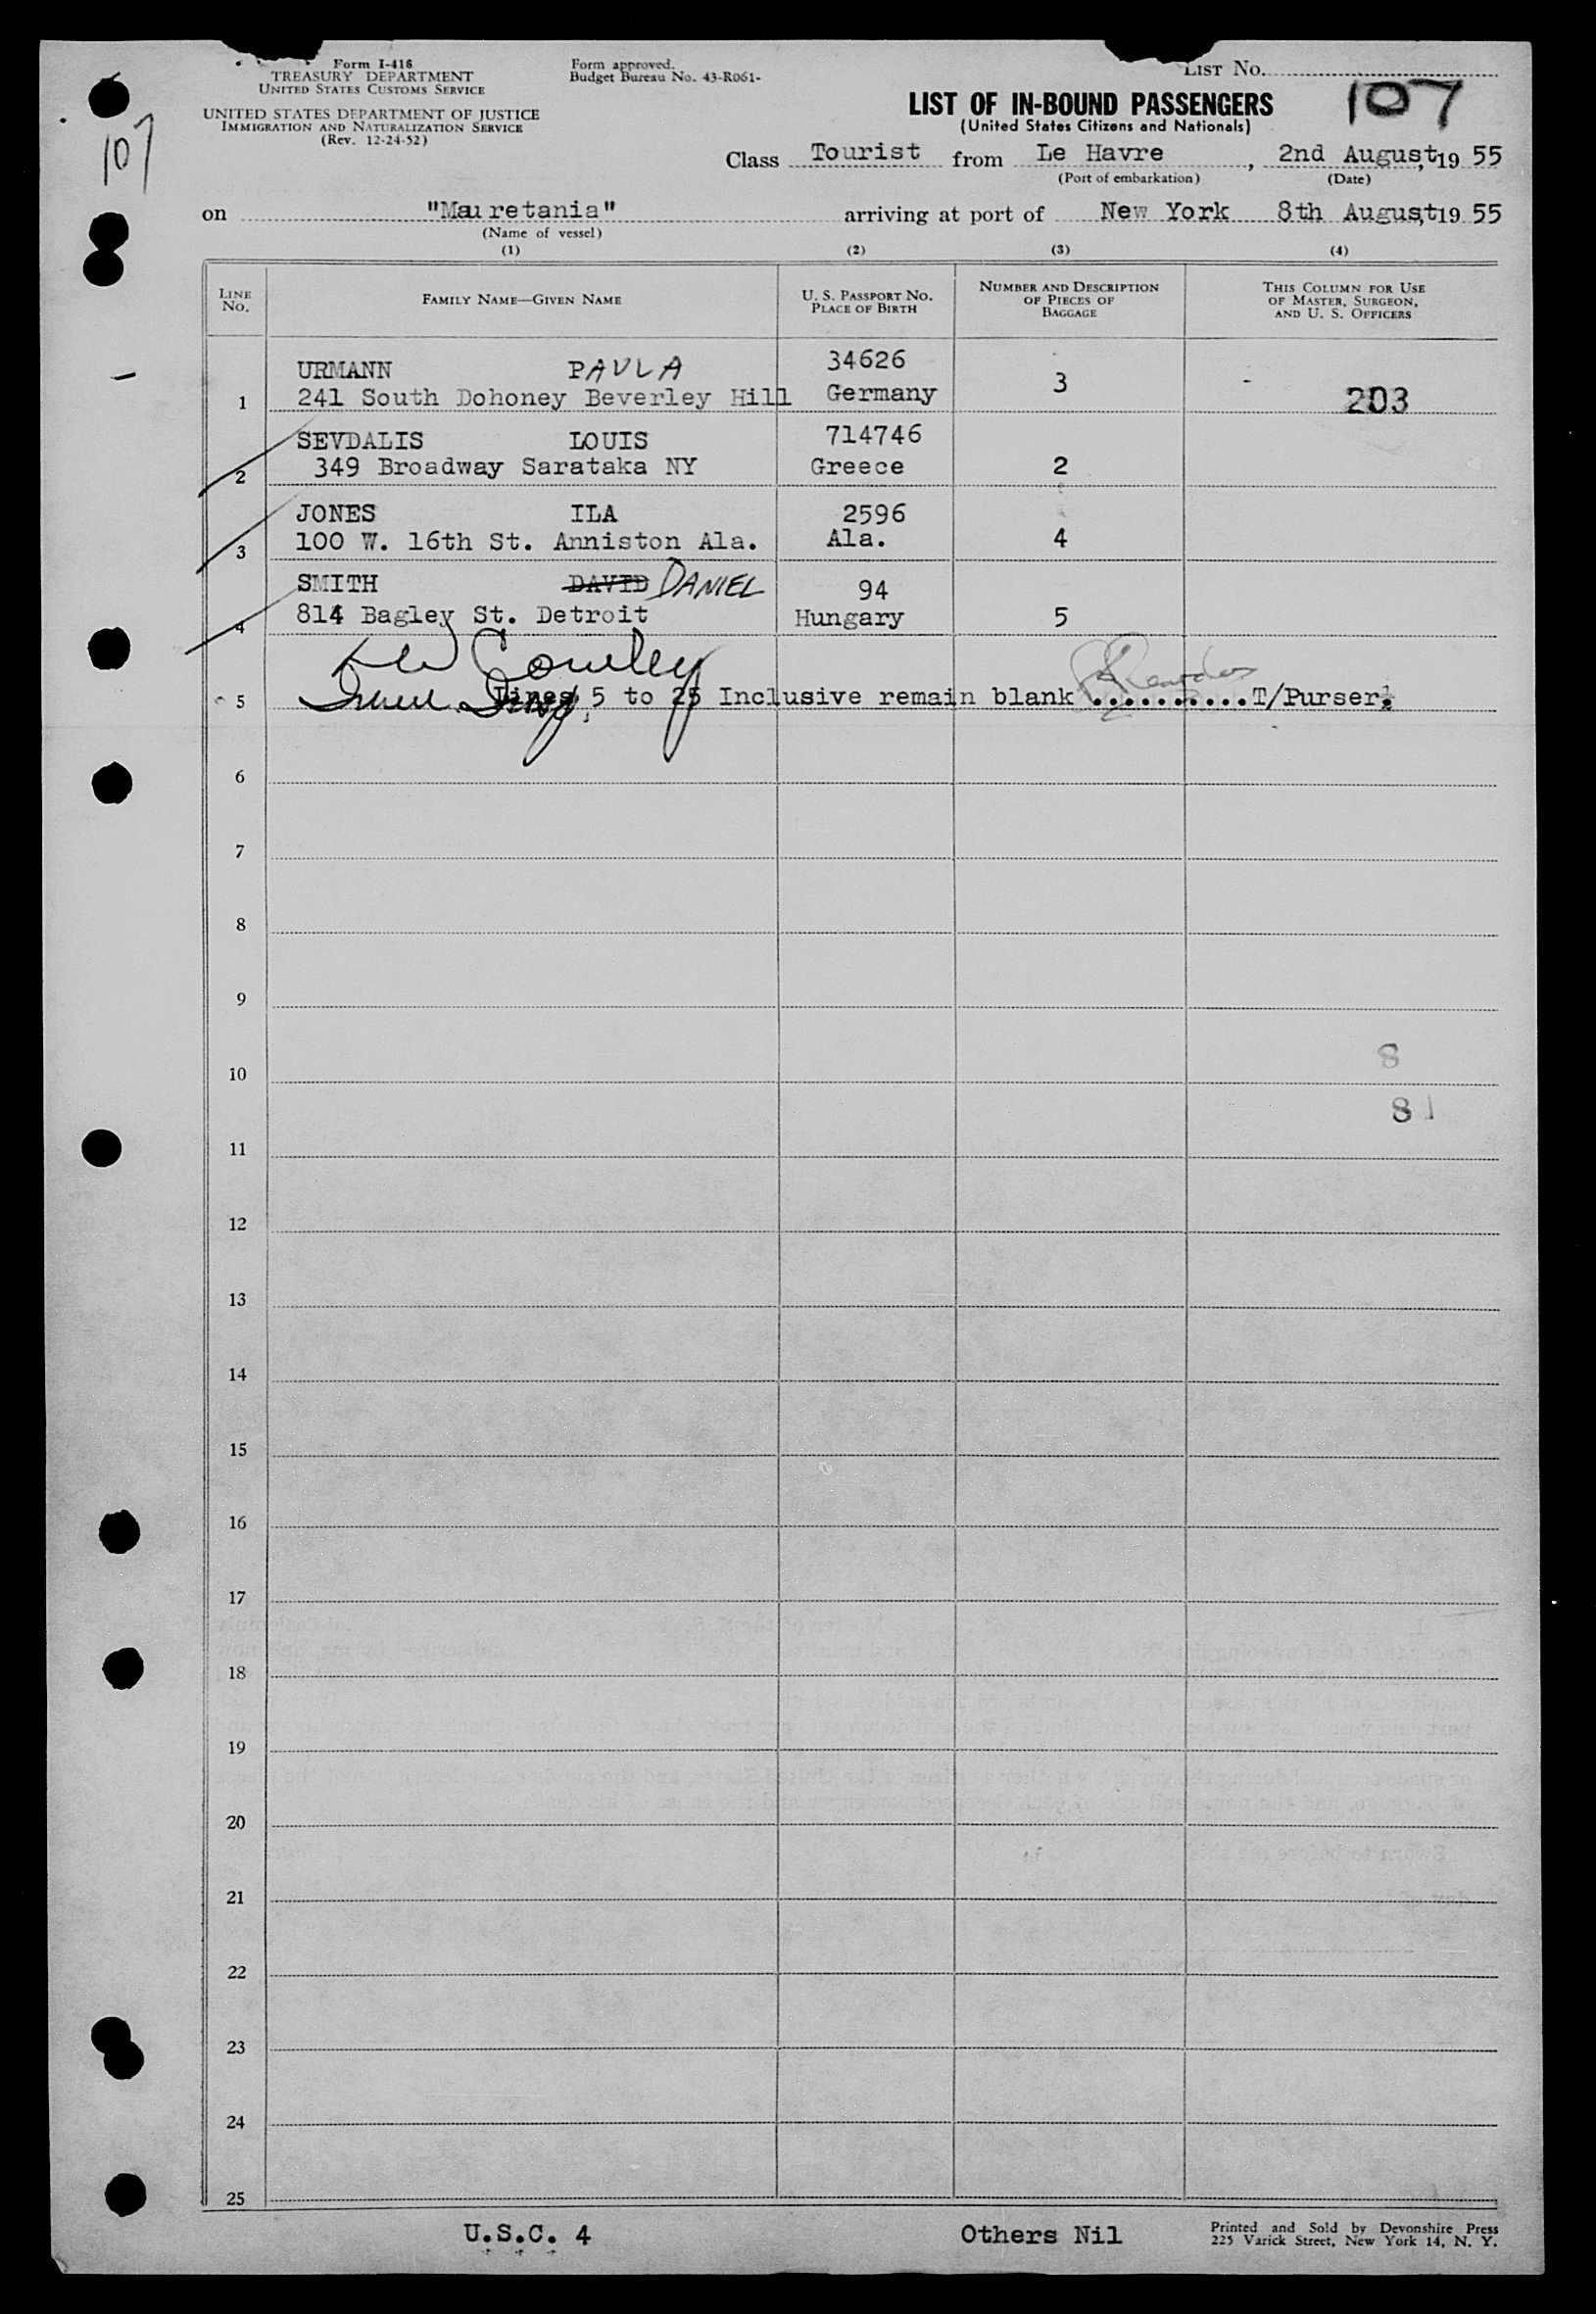 Form I-418
TREASURY DEPARTMENT
UNITED STATES CUSTOMS SERVICE
UNITED STATES DEPARTMENT OF JUSTICE
IMMIGRATION AND NATURALIZATION SERVICE
(Rev. 12-24-52)
Form approved.
Budget Bureau No. 43-R061-
LIST No.
107
107
LIST OF IN-BOUND PASSENGERS
(United States Citizens and Nationals)
Class Tourist from Le Havre, 2nd August, 19 55
(Port of embarkation) (Date)
on "Mauretania" arriving at port of New York 8th August, 19 55
(Name of vessel)
(1) (2) (3) (4)
LINE No. FAMILY NAME—GIVEN NAME U. S. PASSPORT NO. PLACE OF BIRTH NUMBER AND DESCRIPTION OF PIECES OF BAGGAGE THIS COLUMN FOR USE OF MASTER, SURGEON, AND U. S. OFFICERS
URMANN PAULA 34626
1 241 South Dohoney Beverley Hill Germany 3 - 203
SEVDALIS LOUIS 714746
2 349 Broadway Sarataka NY Greece 2
JONES ILA 2596
3 100 W. 16th St. Anniston Ala. Ala. 4
SMITH DAVID DANIEL 94
4 814 Bagley St. Detroit Hungary 5
5 Lines 5 to 25 Inclusive remain blank ..........T/Purser.
6
7
8
9
8
10
81
11
12
13
14
15
16
17
18
19
20
21
22
23
24
25
U.S.C. 4 Others Nil
Printed and Sold by Devonshire Press
225 Varick Street, New York 14, N. Y.